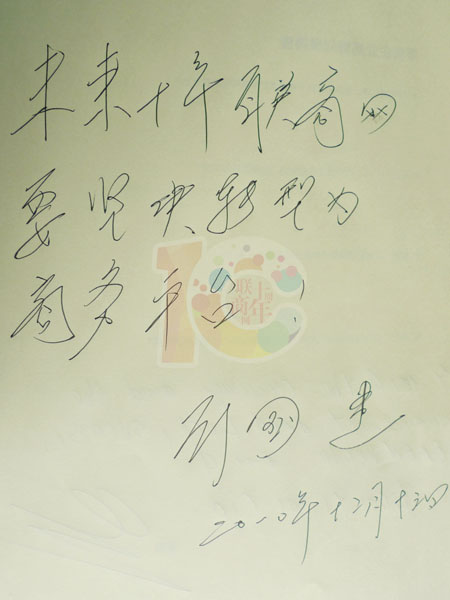 未来十年联商网
要坚决转型为
商务平台!
联商网
十年
二〇一〇年十二月十五日